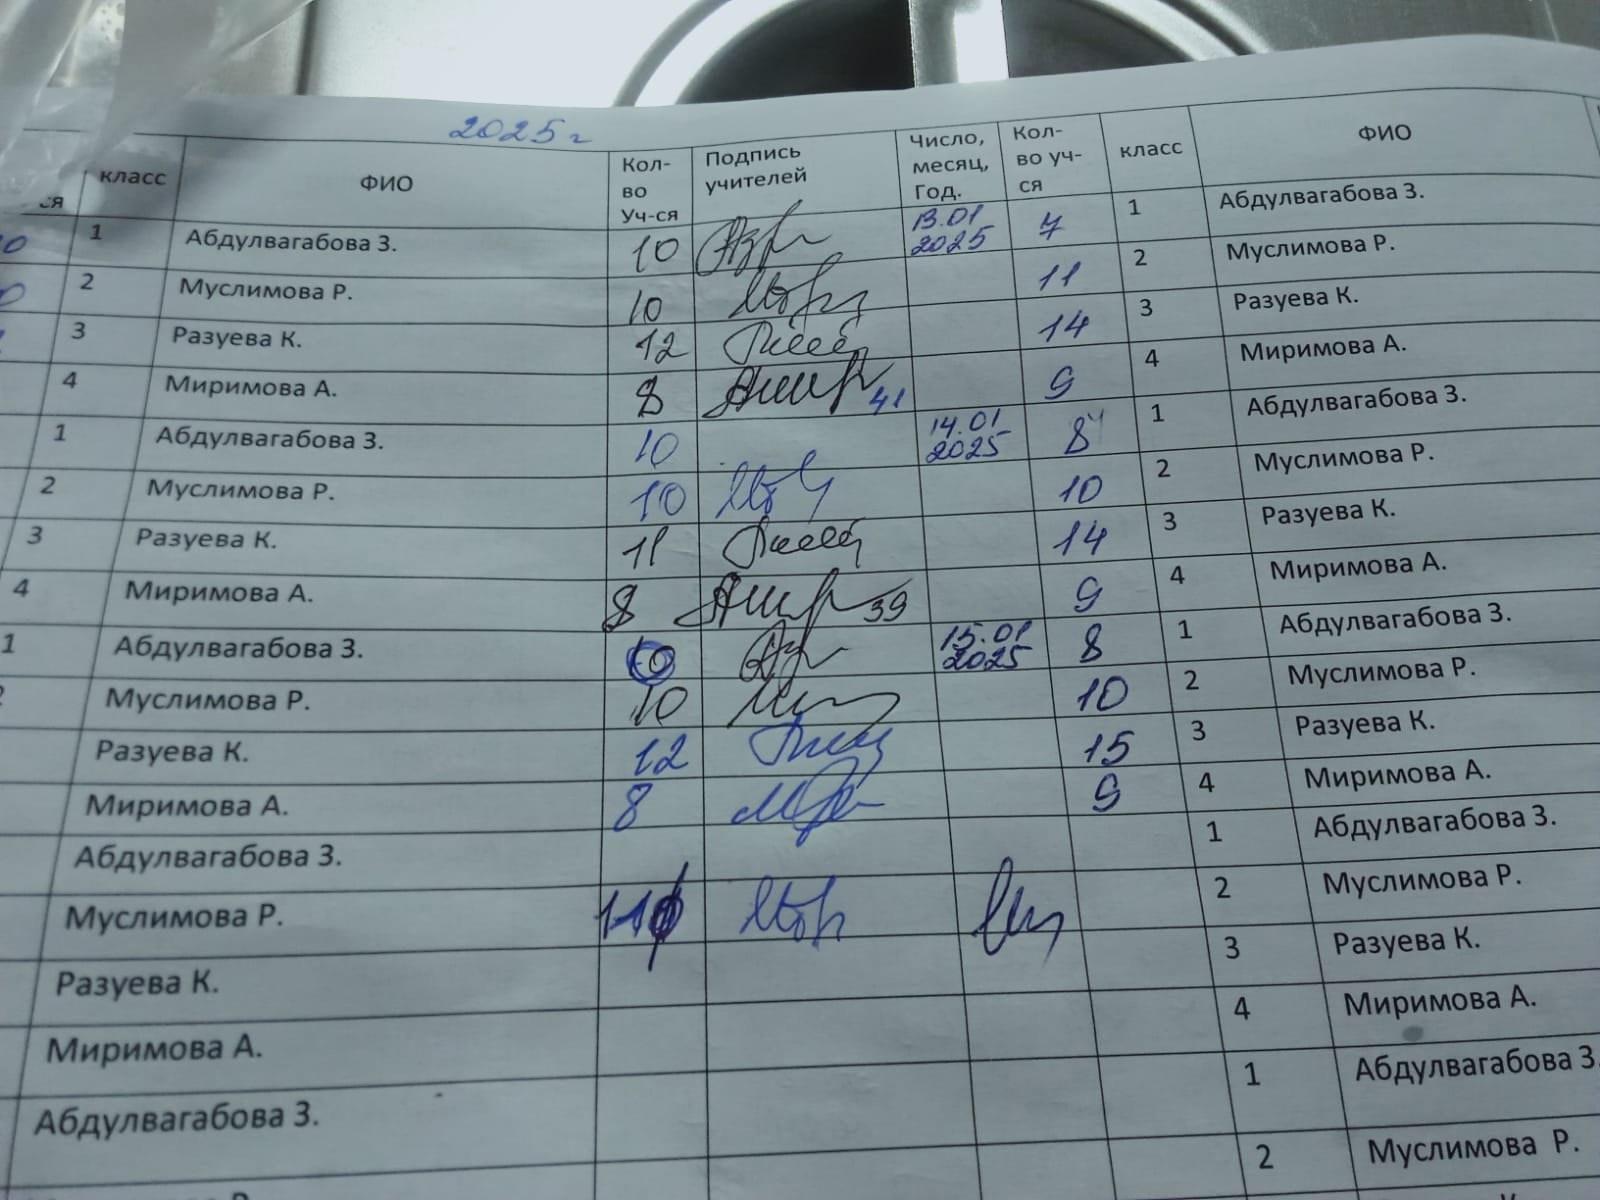 2025 г
ся класс ФИО Кол-во Уч-ся Подпись учителей Число, месяц, Год. Кол-во уч-ся класс ФИО
1 Абдулвагабова З. 10 13.01 2025 7 1 Абдулвагабова З.
2 Муслимова Р. 10 11 2 Муслимова Р.
3 Разуева К. 12 14 3 Разуева К.
4 Миримова А. 8 41 9 4 Миримова А.
1 Абдулвагабова З. 10 14.01 2025 8 1 Абдулвагабова З.
2 Муслимова Р. 10 10 2 Муслимова Р.
3 Разуева К. 11 14 3 Разуева К.
4 Миримова А. 8 39 9 4 Миримова А.
1 Абдулвагабова З. 10 15.01 2025 8 1 Абдулвагабова З.
Муслимова Р. 10 10 2 Муслимова Р.
Разуева К. 12 15 3 Разуева К.
Миримова А. 8 9 4 Миримова А.
Абдулвагабова З. 1 Абдулвагабова З.
Муслимова Р. 2 Муслимова Р.
Разуева К. 3 Разуева К.
Миримова А. 4 Миримова А.
Абдулвагабова З. 1 Абдулвагабова З.
2 Муслимова Р.